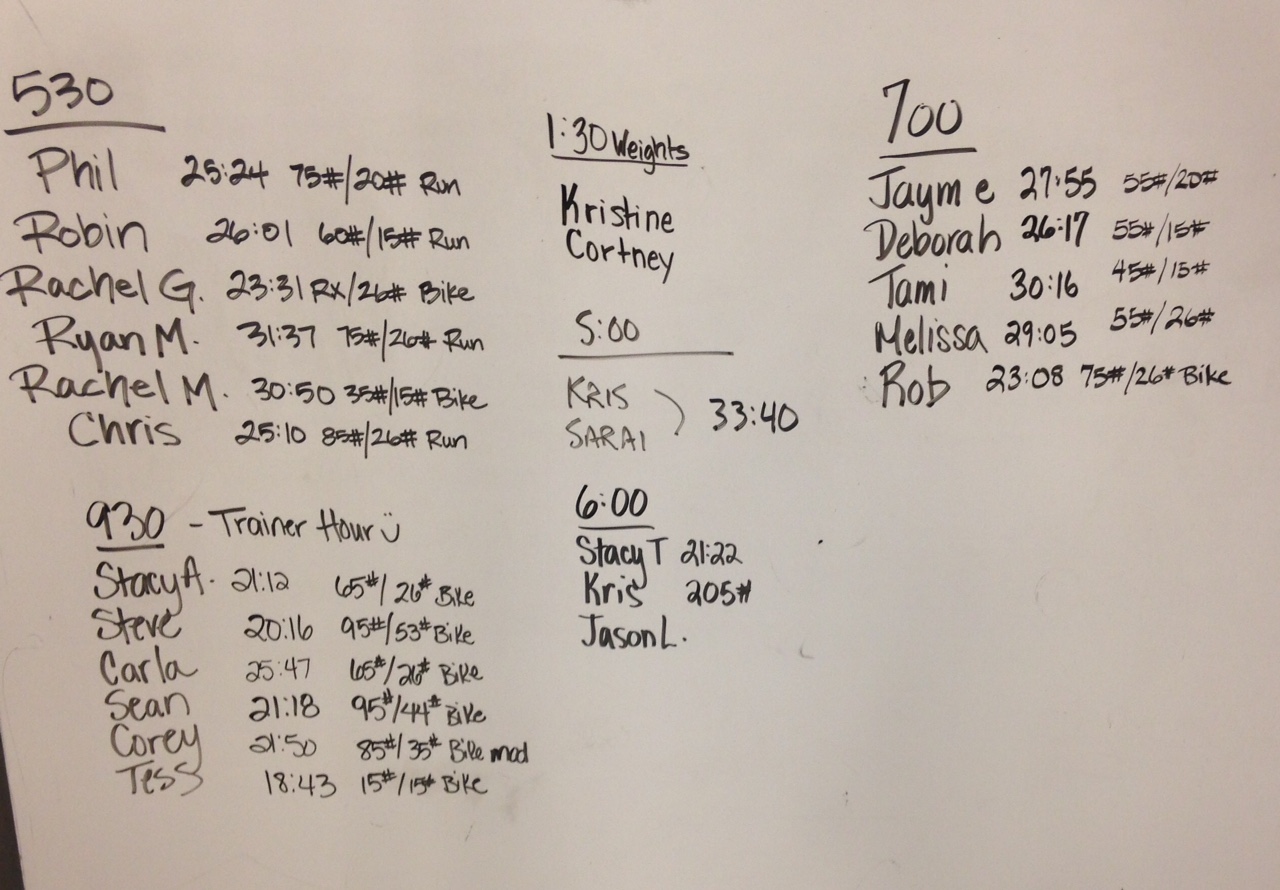 530
Phil 25:24 75#/20# Run
Robin 26:01 60#/15# Run
Rachel G. 23:31 RX/26# Bike
Ryan M. 31:37 75#/26# Run
Rachel M. 30:50 35#/15# Bike
Chris 25:10 85#/26# Run
930 - Trainer Hour
Stacy A. 21:12 65#/26# Bike
Steve 20:16 95#/53# Bike
Carla 25:47 65#/26# Bike
Sean 21:18 95#/44# Bike
Corey 21:50 85#/35# Bike mod
Tess 18:43 15#/15# Bike
1:30 Weights
Kristine
Cortney
5:00
KRIS
SARAI
33:40
6:00
Stacy T 21:22
Kris 205#
Jason L.
700
Jayme 27:55 55#/20#
Deborah 26:17 55#/15#
Tami 30:16 45#/15#
Melissa 29:05 55#/26#
Rob 23:08 75#/26# Bike